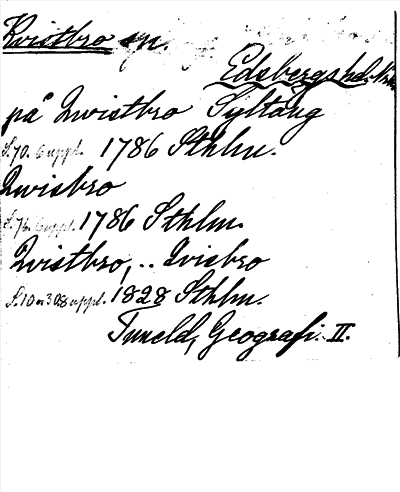 Kvistbro sn.
Edsbergs hd.
på Qvistbro Syltäng
S. 70. 6 uppl. 1786 Sthlm.
Qvisbro
S. 76. 6 uppl. 1786 Sthlm.
Qvistbro, .. Qvisbro
S. 10 o 308 uppl. 1828 Sthlm.
Tuneld, Geografi. II.